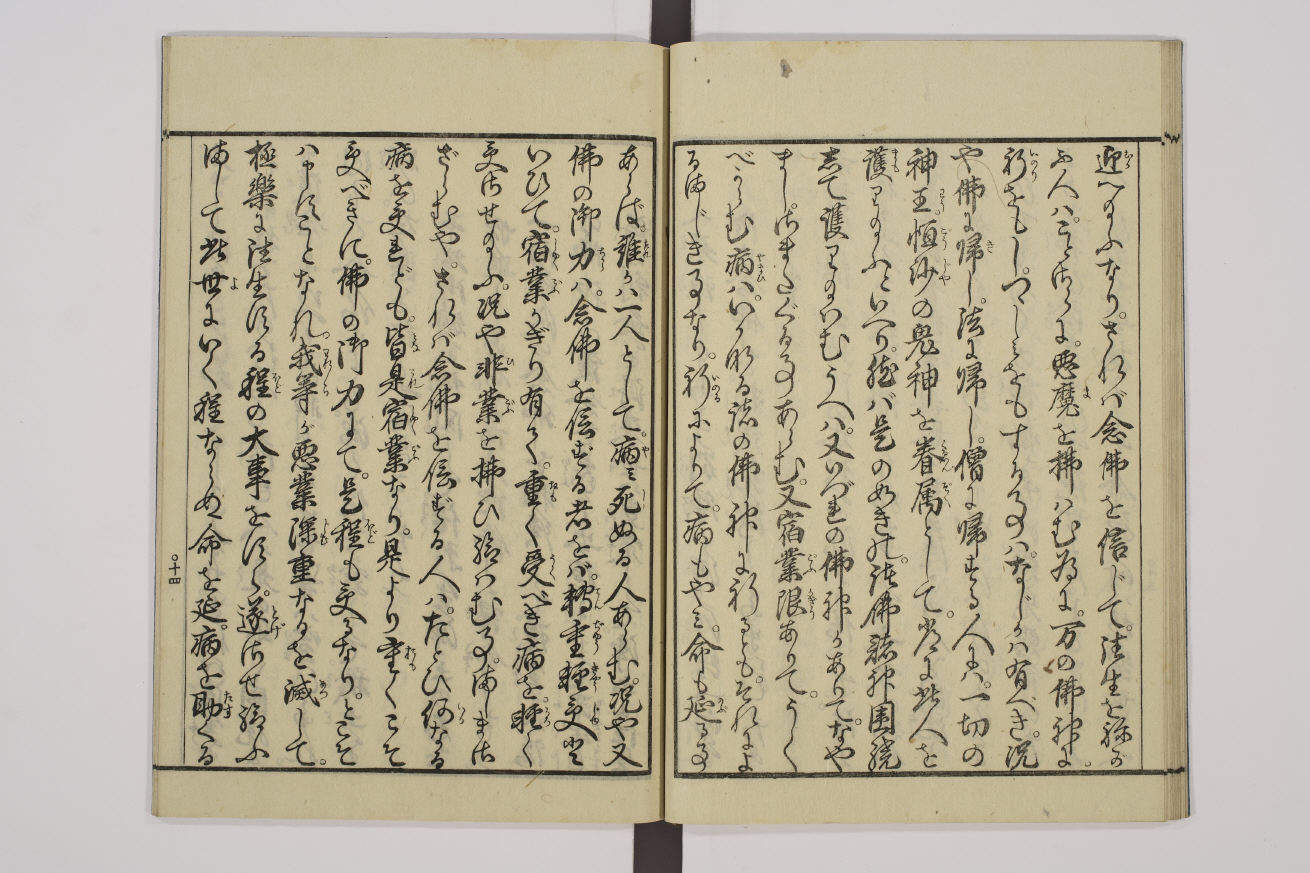 迎へ給ふなり。されば念佛を信じて。往生を祢がふ人には。ことさらに。悪魔を拂はむ為に。万の佛神に。
祈をもし。つゝしミをもする事ハ。なじかハ有べき。況
や佛に帰し。法に帰し。僧に帰する人にハ。一切の
神王。恒沙の鬼神を眷属として。常に此人を
護り給ふといへり。然バ是のごとき。諸佛諸神囲繞
して護り給はむうへハ。又いづれの佛神かありて。なや
まし。さまたぐる事あらむ。又宿業限ありて。うく
べからむ病ハ。いかなる諸の佛神に祈るとも。それによ
るまじき事なり。祈によりて。病もやミ。命も延る事
あらば。誰かハ一人として。病ミ死ぬる人あらむ。況や又
佛の御力ハ。念佛を信ずる者をバ。轉重軽受と
いひて。宿業かぎり有て。重く受べき病を。軽く
受させ給ふ。況や非業を拂ひ給はむ事。ましまさ
ざらむや。されバ念佛を信ずる人ハ。たとひ何なる
病を受れども。皆是宿業なり。是より重くこそ
受べきに。佛の御力にて。是程も受るなりとこそ
ハ申すことなれ。我等が悪業深重なるを滅して。
極樂に往生する程の大事をすら。遂させ給ふ
まして此世にいく程ならぬ命を延。病を助くる
十四